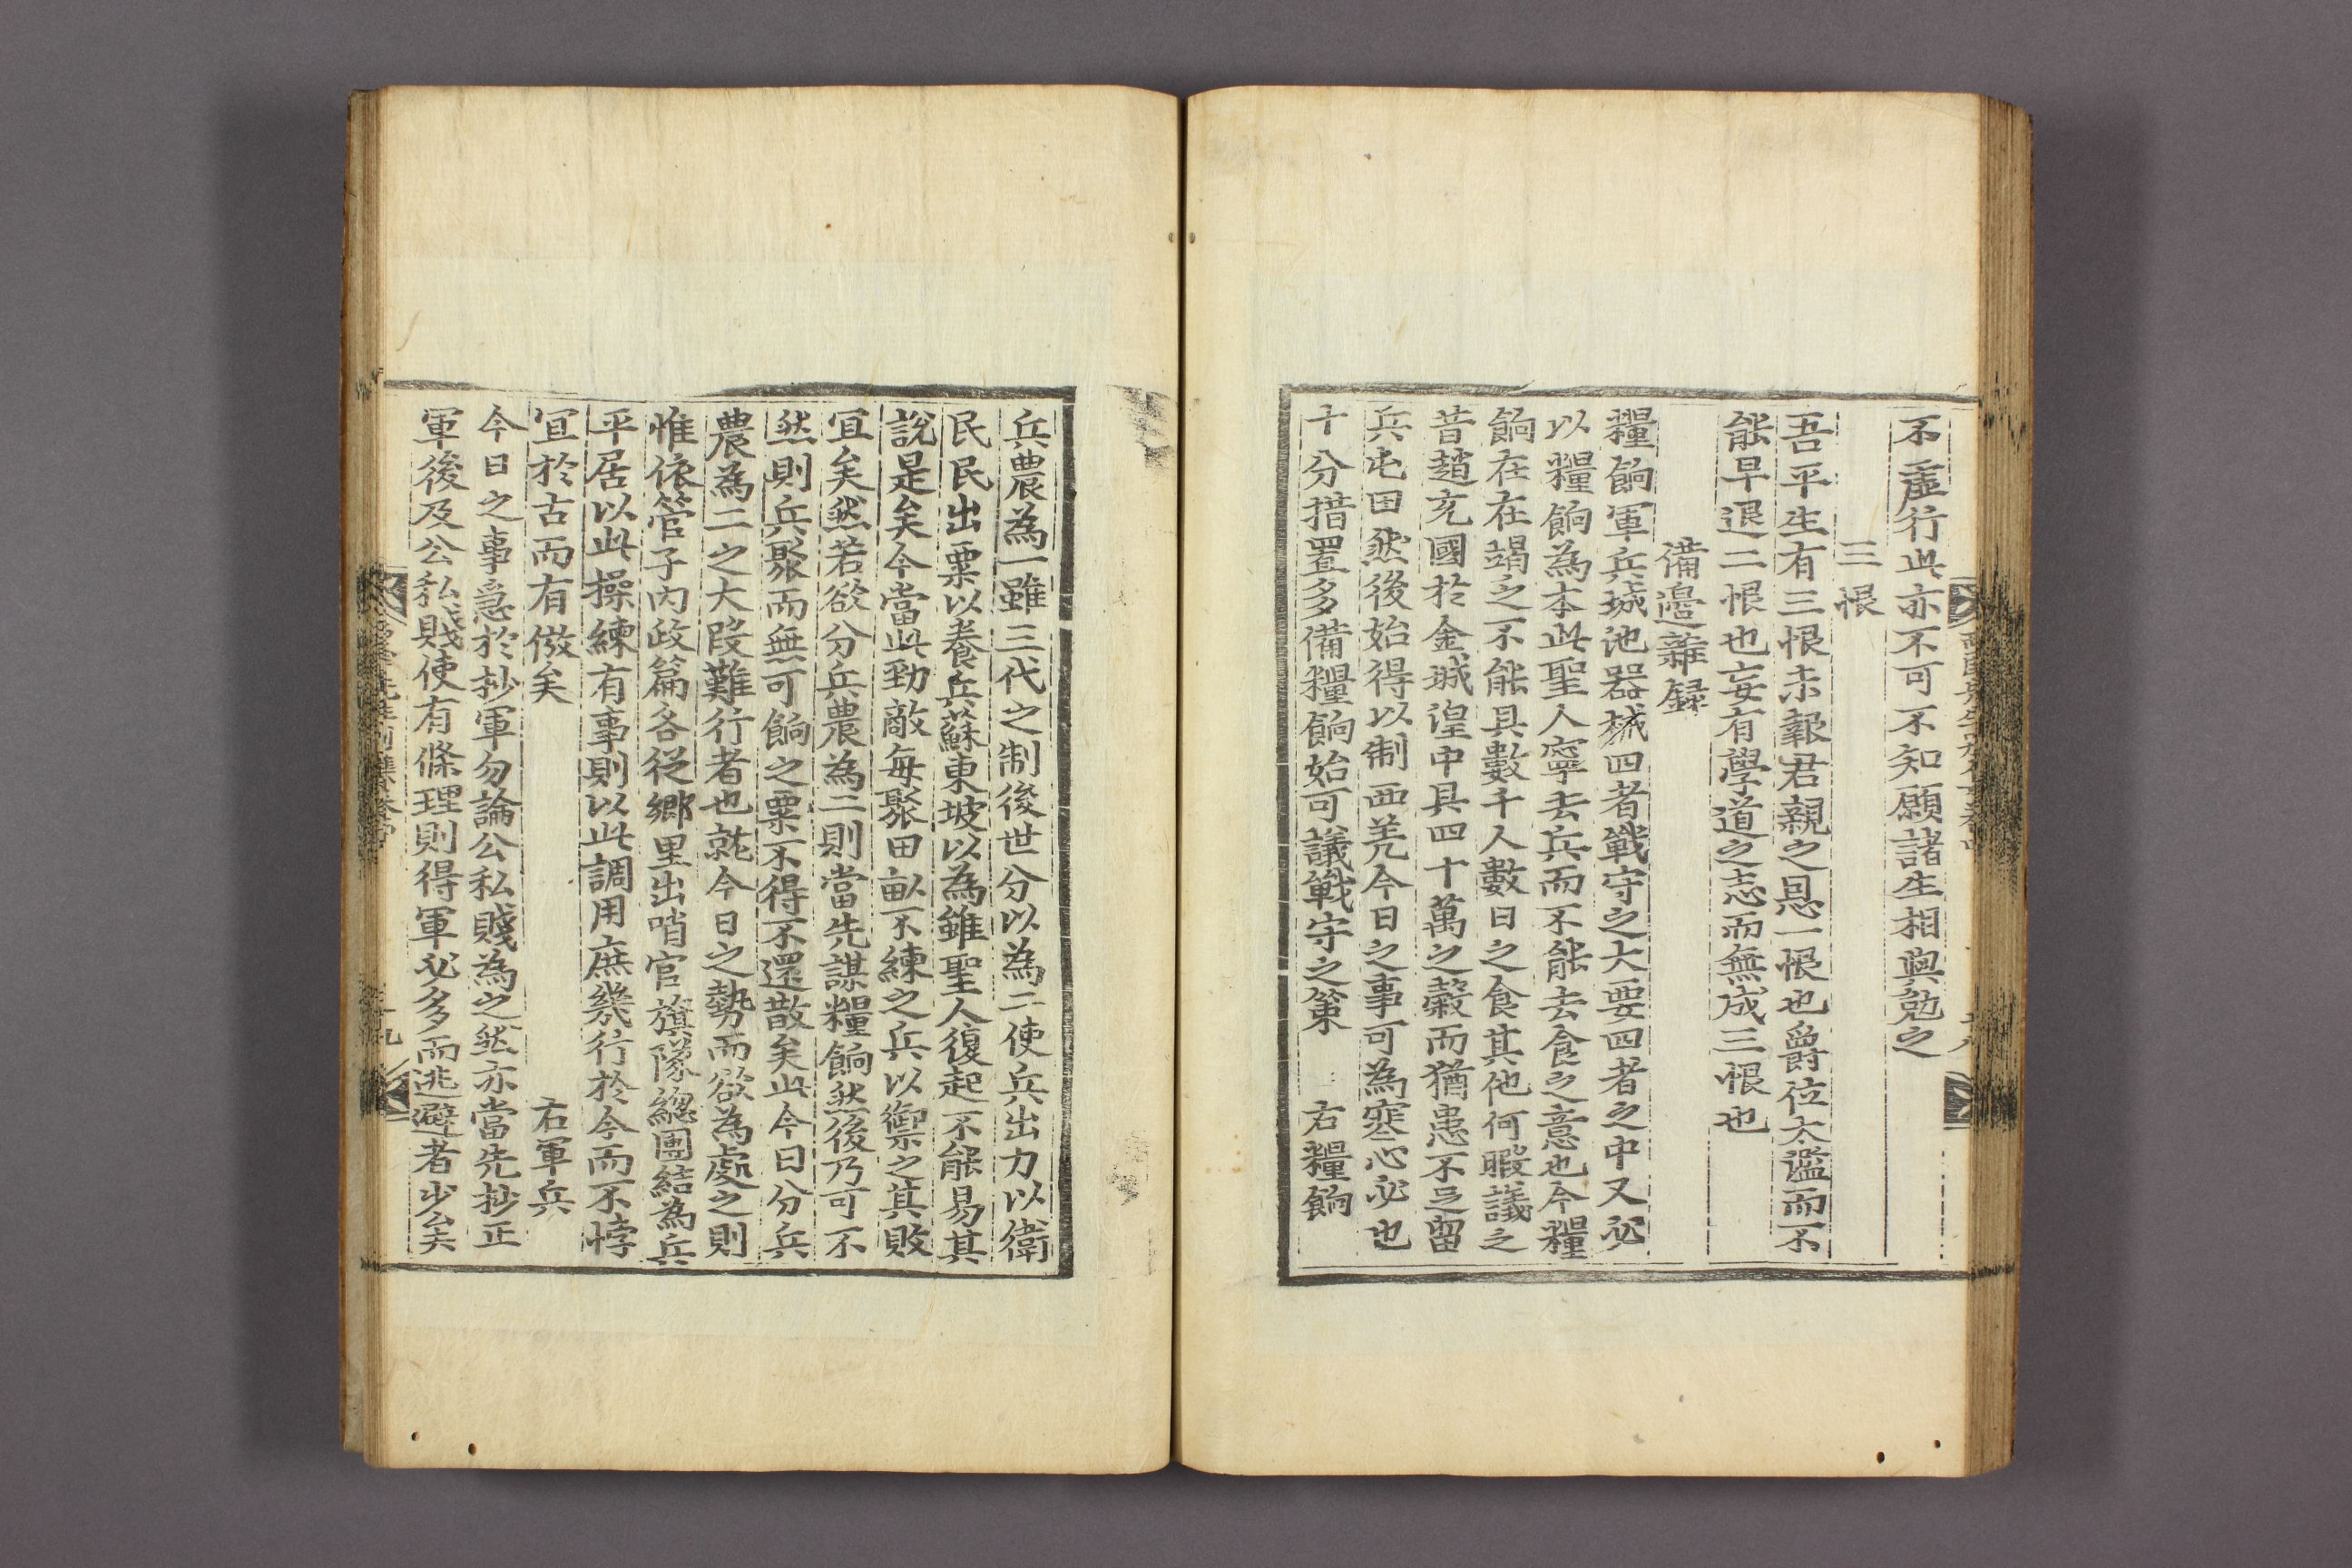 不虛行此亦不可不知願諸生相與勉之
三恨
吾平生有三恨未報君親之恩一恨也爵位太濫而不
能早退二恨也妄有學道之志而無成三恨也
備邊雜録
糧餉軍兵城池器械四者戰守之大要四者之中又必
以糧餉為本此聖人寧去兵而不能去食之意也今糧
餉在在竭乏不能具數千人數日之食其他何暇議之
昔趙充國於金城湟中具四十萬之糓而猶患不足留
兵屯田然後始得以制西羌今日之事可為寒心必也
十分措置多備糧餉始可議戰守之策 右糧餉
兵農為一雖三代之制後世分以為二使兵出力以衛
民民出粟以養兵蘇東坡以為雖聖人復起不能易其
說是矣今當此勁敵每聚田畝不練之兵以禦之其敗
宜矣然若欲分兵農為二則當先謀糧餉然後乃可不
然則兵聚而無可餉之粟不得不還散矣此今日分兵
農為二之大段難行者也就今日之勢而欲為處之則
惟依管子內政篇各從鄉里出哨官旗隊緫團結為兵
平居以此操練有事則以此調用庶幾行於今而不悖
宜於古而有倣矣 右軍兵
今日之事急於抄軍勿論公私賤為之然亦當先抄正
軍後及公私賤使有條理則得軍必多而逃避者少矣